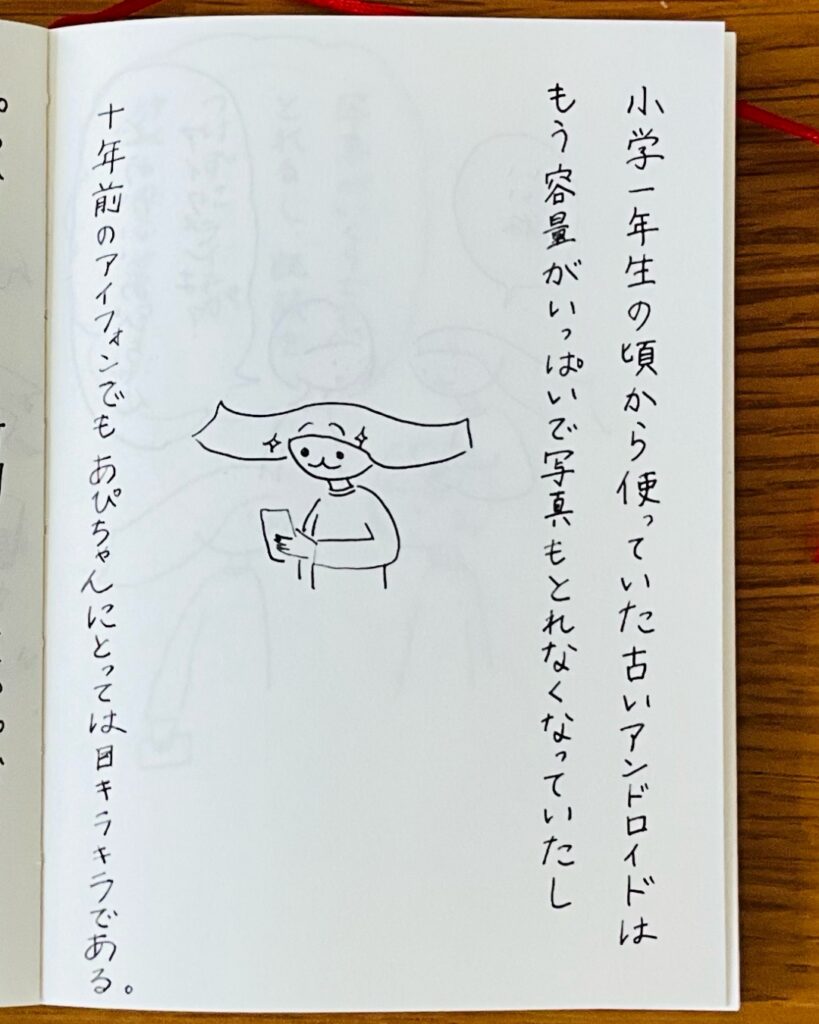 小学一年生の頃から使っていた古いアンドロイドは
もう容量がいっぱいで写真もとれなくなっていたし
十年前のアイフォンでもあぴちゃんにとっては目キラキラである。